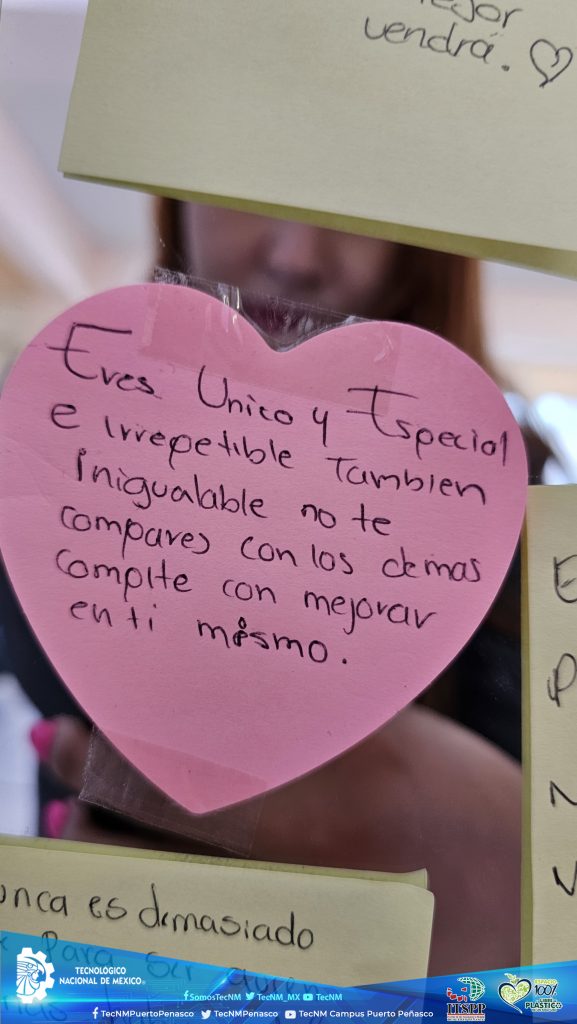 vendrá.
Eres Unico y Especial
e irrepetible Tambien
inigualable no te
compares con los demas
compite con mejorar
en ti mismo.
es demasiado
Para ser
TECNOLÓGICO
NACIONAL DE MÉXICO
SomosTecNM TecNM_MX TecNM
TecNMPuertoPenasco TecNMPenasco TecNM Campus Puerto Peñasco
ITSPP
ESPACIO
100%
PLÁSTICO